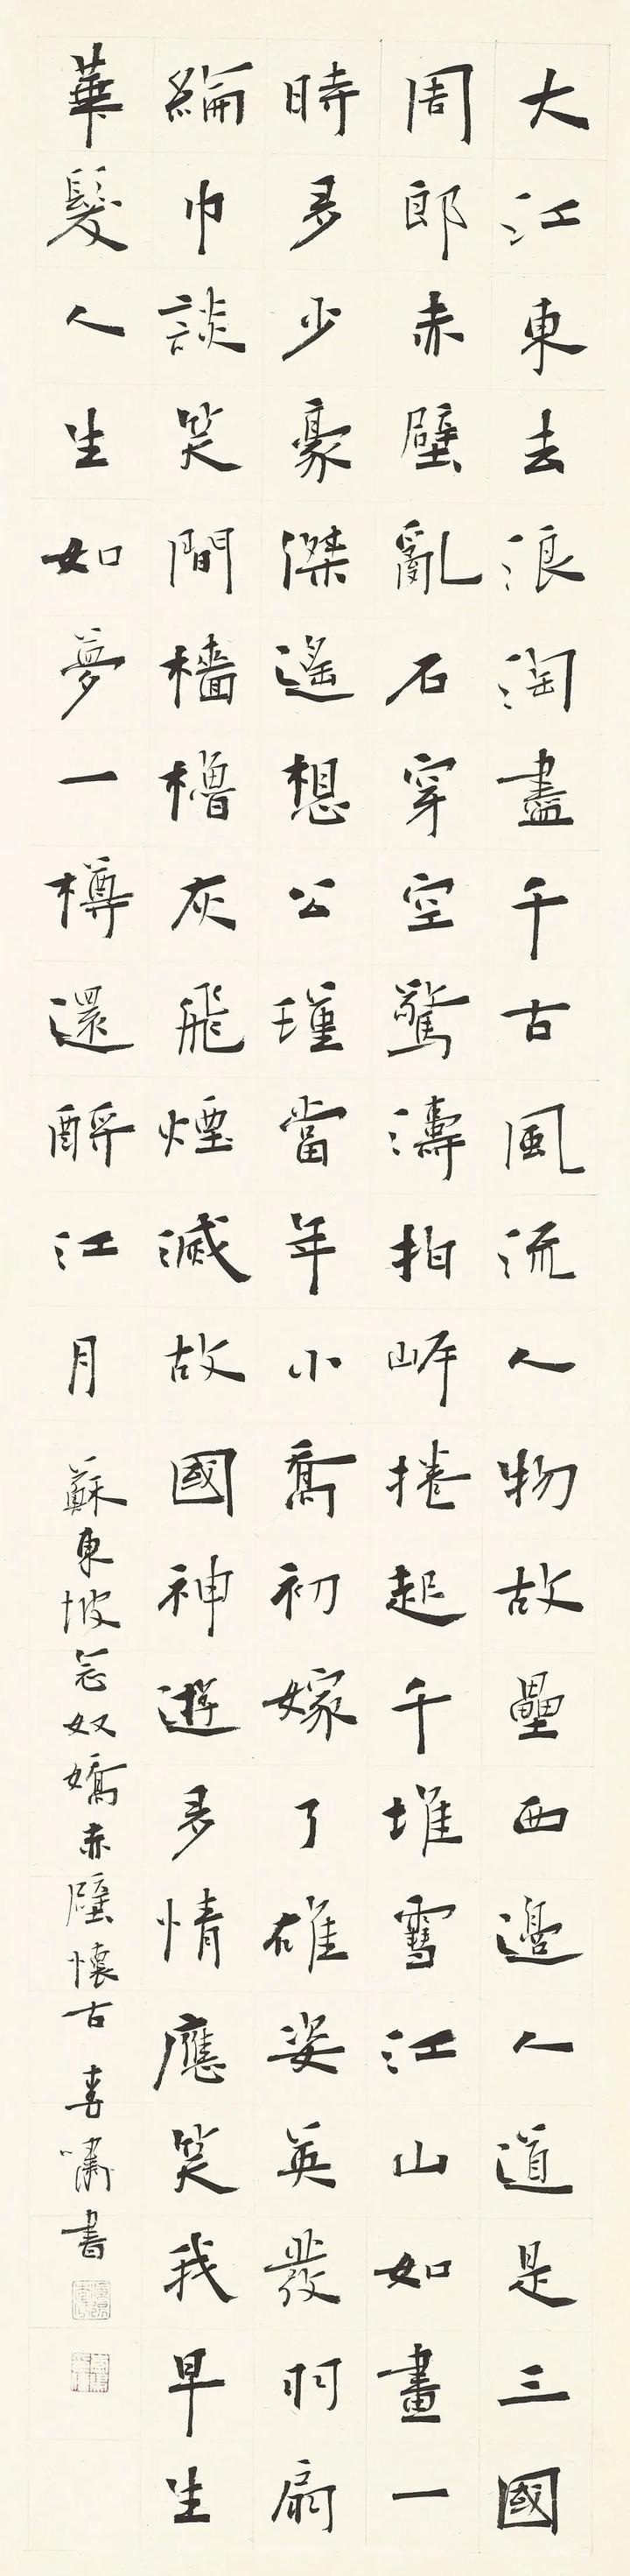 大江東去浪淘盡千古風流人物故壘西邊人道是三國
周郎赤壁亂石穿空驚濤拍岸捲起千堆雪江山如畫一
時多少豪傑遙想公瑾當年小喬初嫁了雄姿英發羽扇
綸巾談笑間檣櫓灰飛煙滅故國神遊多情應笑我早生
華髮人生如夢一樽還酹江月 蘇東坡念奴嬌赤壁懷古 李嘯書